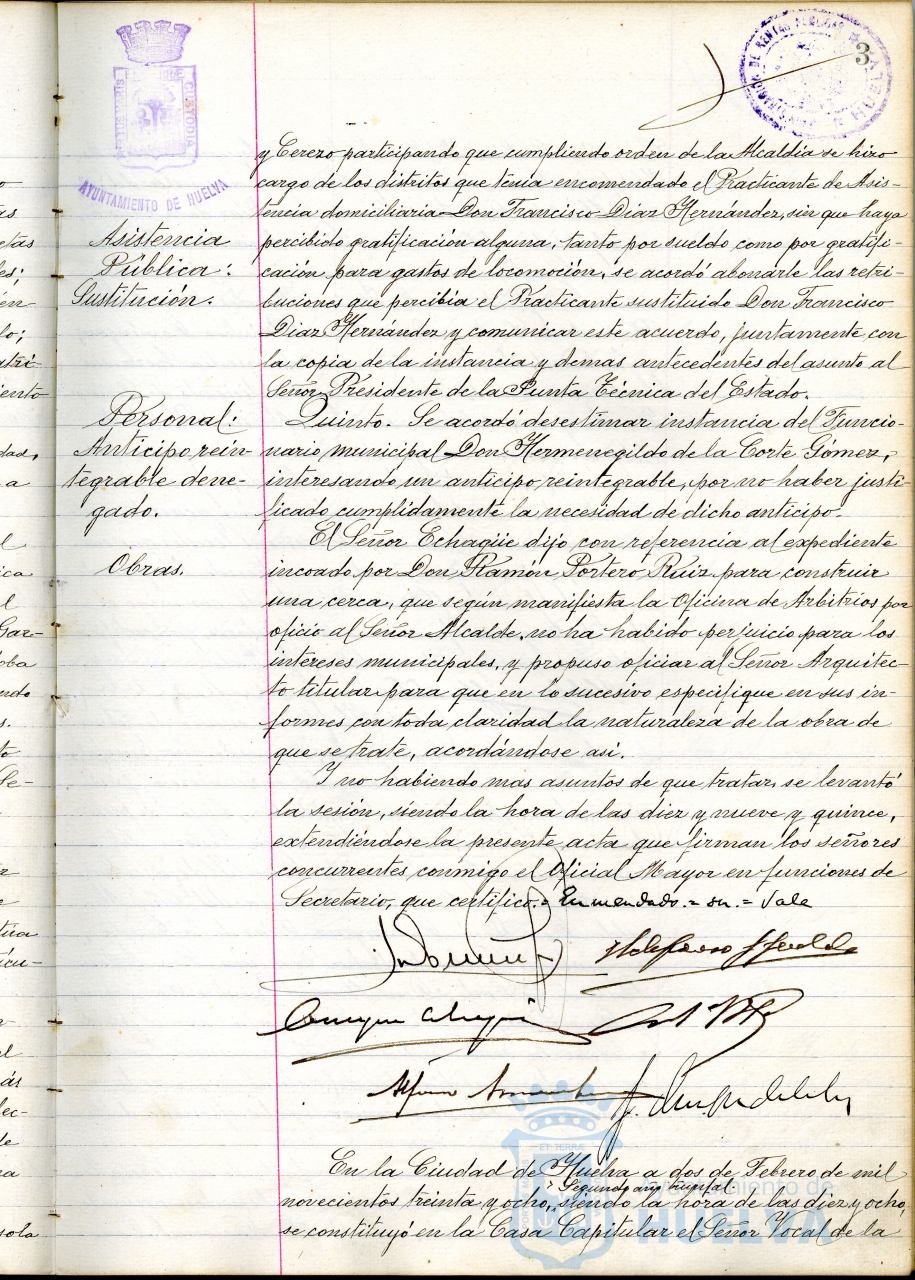 3
PORTUS MARIS ET TERRE CUSTODIA
AYUNTAMIENTO DE HUELVA
ADMINISTRACION DE RENTAS PUBLICAS HUELVA
y Cerezo participando que cumpliendo orden de la Alcaldía se hizo
cargo de los distritos que tenía encomendado el Practicante de Asis-
tencia domiciliaria Don Francisco Díaz Hernández, sin que haya
Asistencia
Pública:
Sustitución.
percibido gratificación alguna, tanto por sueldo como por gratifi-
cación para gastos de locomoción, se acordó abonarle las retri-
buciones que percibía el Practicante sustituido Don Francisco
Díaz Hernández y comunicar este acuerdo, juntamente con
la copia de la instancia y demas antecedentes del asunto al
Señor Presidente de la Junta Técnica del Estado.
Personal:
Anticipo rein-
tegrable dene-
gado.
Quinto. Se acordó desestimar instancia del Funcio-
nario municipal Don Hermenegildo de la Corte Gómez,
interesando un anticipo reintegrable, por no haber justi-
ficado cumplidamente la necesidad de dicho anticipo.
Obras.
El Señor Echagüe dijo con referencia al expediente
incoado por Don Ramón Portero Ruiz para construir
una cerca, que según manifiesta la Oficina de Arbitrios por
oficio al Señor Alcalde, no ha habido perjuicio para los
intereses municipales, y propuso oficiar al Señor Arquitec-
to titular para que en lo sucesivo especifique en sus in-
formes con toda claridad la naturaleza de la obra de
que se trate, acordándose así.
Y no habiendo mas asuntos de que tratar, se levantó
la sesión, siendo la hora de las diez y nueve y quince,
extendiéndose la presente acta que firman los señores
concurrentes conmigo el Oficial Mayor en funciones de
Secretario, que certifico.= Enmendado.= su.= Vale
En la Ciudad de Huelva a dos de Febrero de mil
Segundo año triunfal.
novecientos treinta y ocho, siendo la hora de las diez y ocho,
se constituyó en la Casa Capitular el Señor Vocal de la
Ayuntamiento de
HUELVA